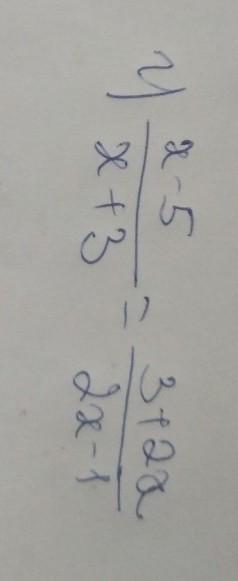 г) x-5/x+3 = 3+2x/2x-1